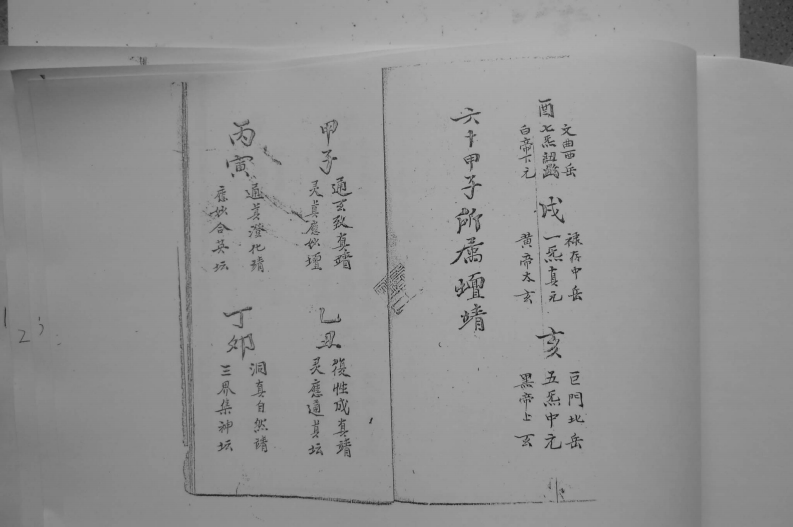 酉
文曲西岳
七炁
白帝下元
戌
禄存中岳
一炁真元
黄帝太玄
亥
巨門北岳
五炁中元
黑帝上玄
六十甲子所属壇靖
甲子
通玄致真靖
灵真應妙壇
乙丑
復性成真靖
灵應通真坛
丙寅
通真澄化靖
應妙合真坛
丁卯
洞真自然靖
三界集神坛